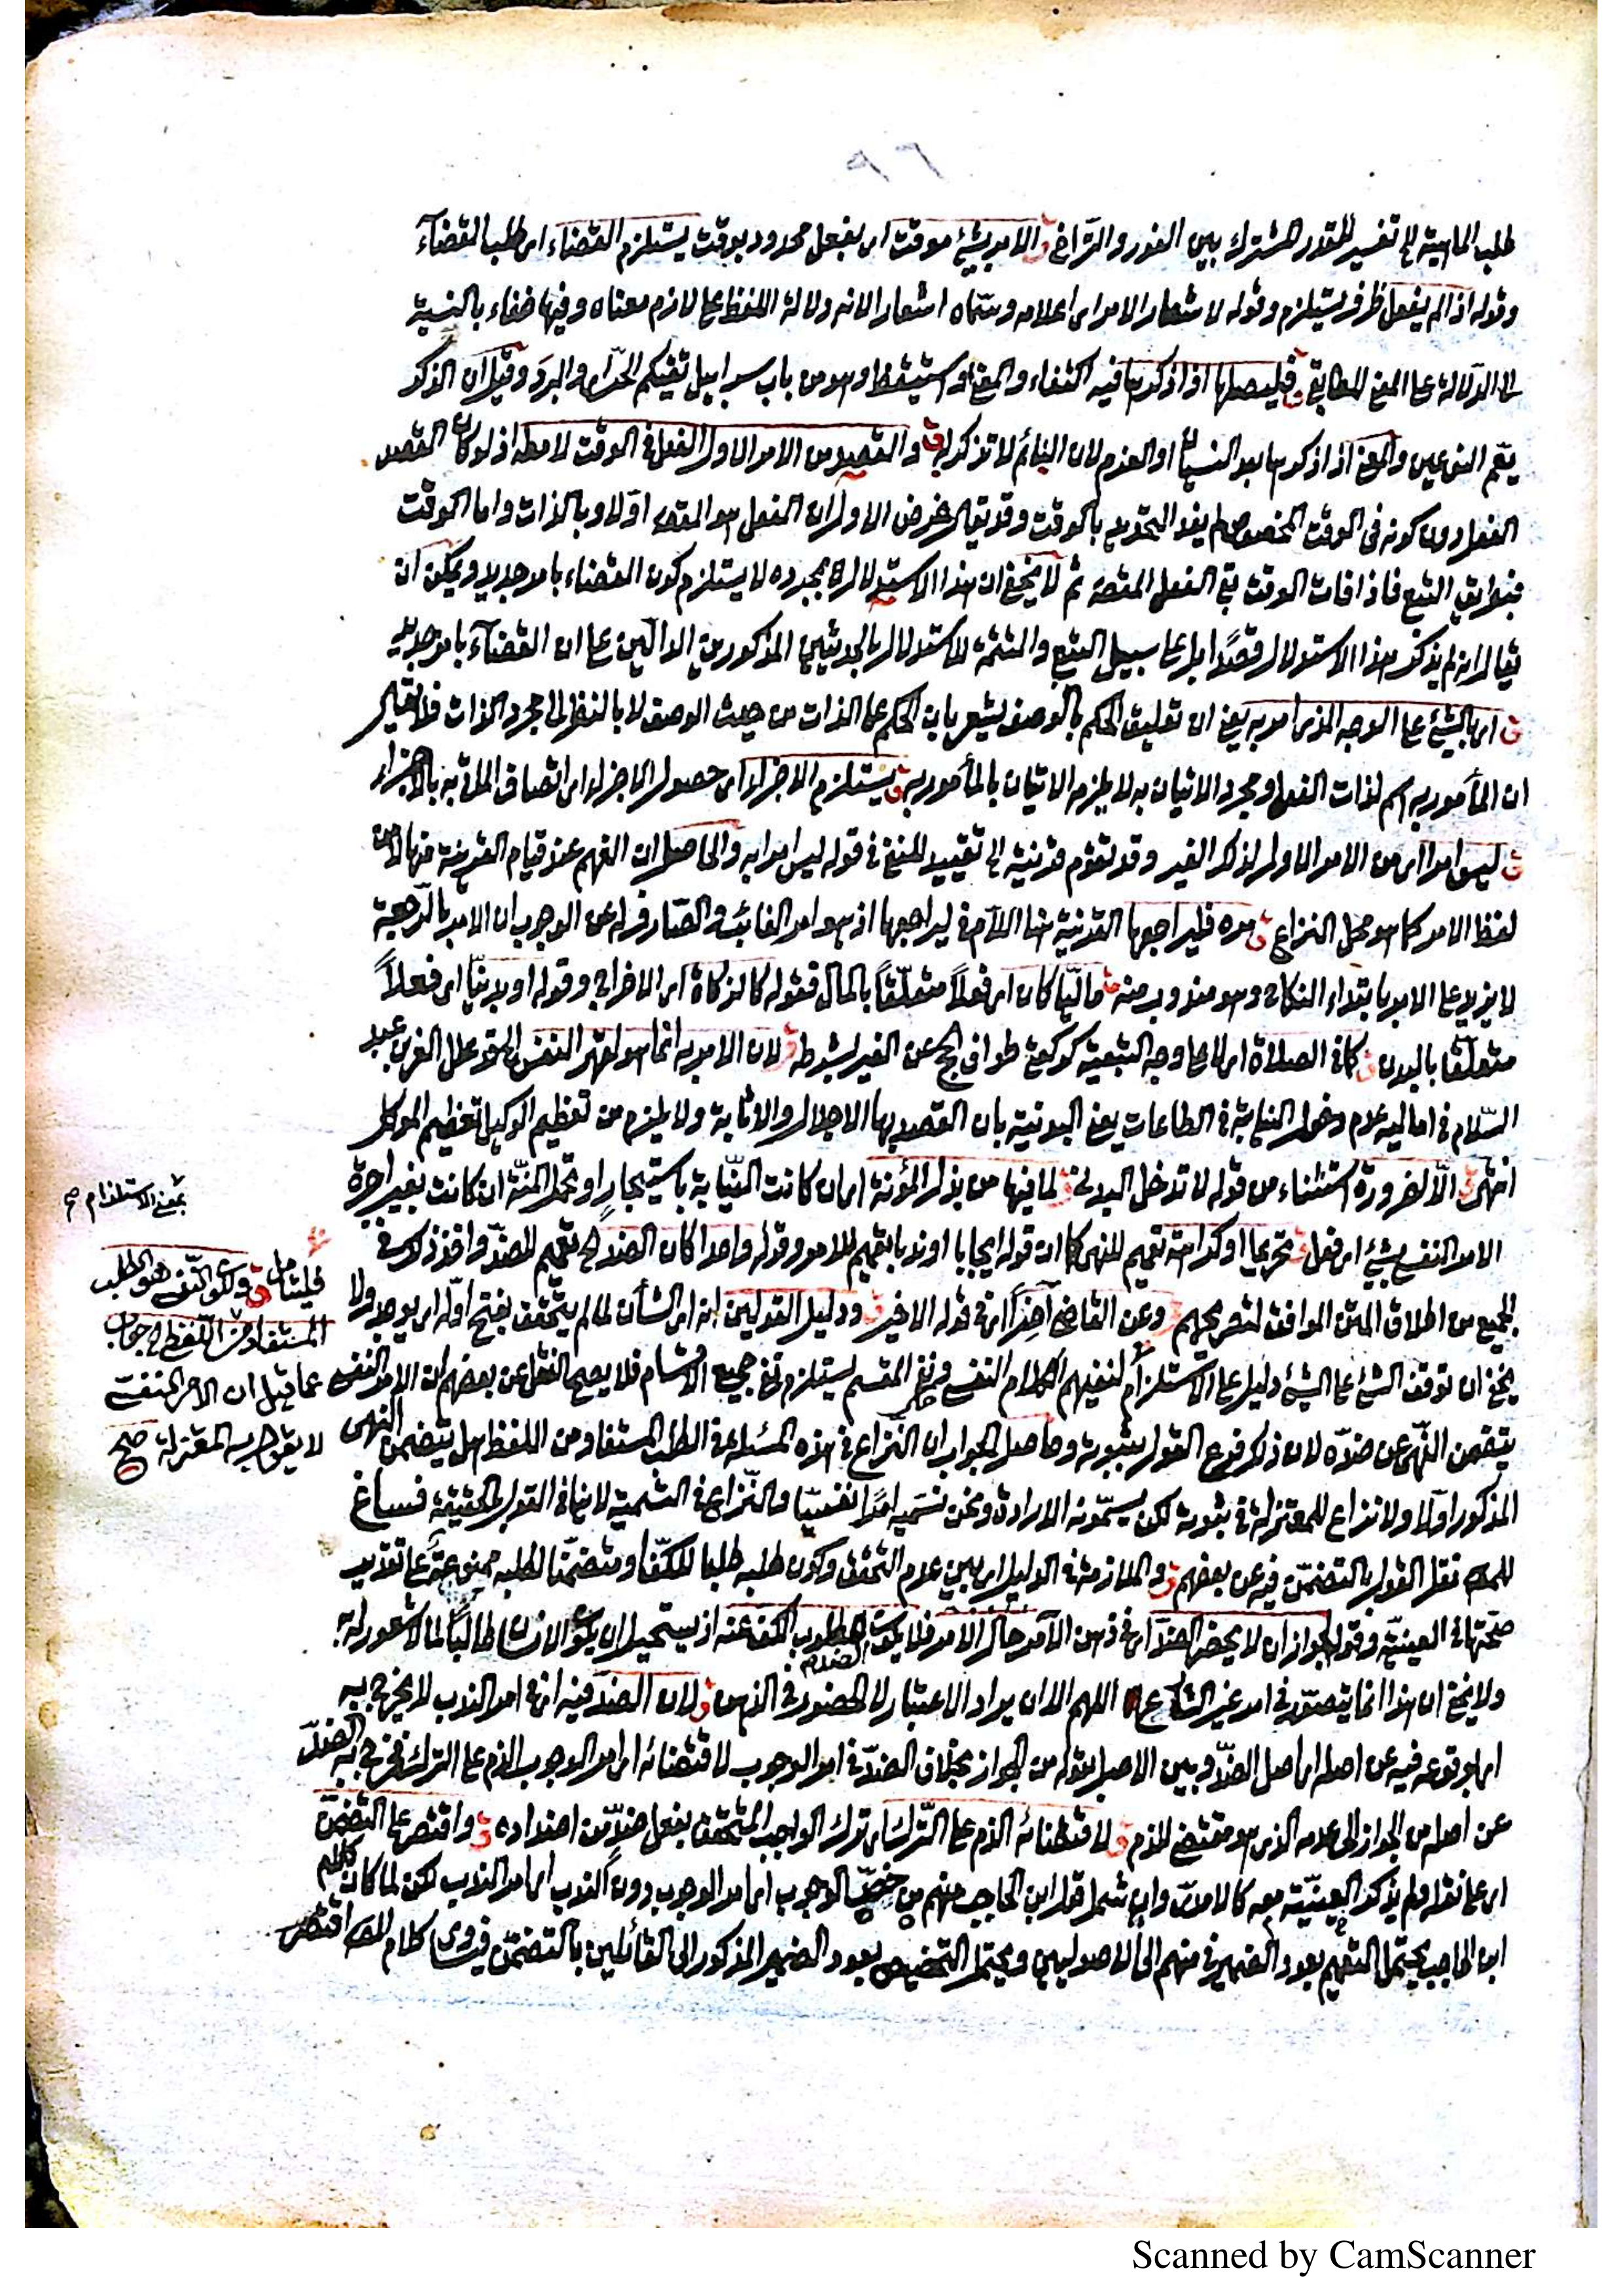 طلب الماهية الى تفسير للقدر المشترك بين الفور والتراخي ق الامر بشيء موقت اى بفعل محدود بوقت يستلزم القضاء اى طلب القضآء
وقوله اذا لم يفعل ظرف يستلزم وقوله لاشعار الامر اى اعلامه وسماه اشعارا لانه دلالة اللفظ على لازم معناه وفيها خفاء بالنسبة
الى الدلالة على المعنى المطابقي ق فليصلها اذا ذكرها فيه اكتفاء والمعنى او استيقظ وهو من باب سرابيل تقيكم الحر اى والبرد وقيل ان الذكر
يعم النوعين والمعنى اذا ذكرها بعد النسيان او العزم لان النائم لا تذكر له ق والقصد من الامر الاول الفعل في الوقت لا مطلقا اذ لو كان القصد
الفعل دون كونه فى الوقت المخصوص لم يفد التحديد بالوقت وقد يقال غرض الاول ان الفعل هو المقصود اولا وبالذات واما الوقت
فبطريق التبع فاذا فات الوقت بقي الفعل المقصود ثم لا يخفى ان هذا الاستدلال بمجرده لا يستلزم كون القضاء بامر جديد ويمكن ان
يقال انه لم يذكر هذا الاستدلال قصدًا بل على سبيل التبع والتتمة للاستدلال بالحديثين المذكورين الدالّين على ان القضآء بامر جديد
ق اى بالشيء على الوجه الذي امر به يعني ان تعليق الحكم بالوصف يشعر بان الحكم على الذات من حيث الوصف لا بالنظر الى مجرد الذات فلا يقال
ان المأمور به اسم لذات الفعل ومجرد الاتيان به لا يلزمه الاتيان بالمأمور به ق يستلزم الاجزاء اى حصول الاجزاء اى اتصاف المأتي به بالاجزاء
ق ليس امرا اى من الامر الاول لذلك الغير وقد تقوم قرينة الى تقييد للمنفي في قوله ليس امرا به والحاصل ان الفهم عند قيام القرينة منها لا من
لفظ الامر كما هو محل النزاع ق مره فليراجعها القرينة هنا اللام في ليراجعها اذ هو امر الغائب والصارف له عن الوجوب ان الامر بالرجعية
لا يزيد على الامر بابتداء النكاح وهو مندوب منه ق ماليّا كان اى فعلًا متعلّقًا بالمال فقوله كالزكاة اى الاخراج وقوله او بدنيّا اى فعلاً
متعلقا بالبدن ق كما في الصلاة اى لا على وجه التبعية كركعتي طواف الحج عن الغير بشرطه ق لان الامر به انما هو لقهر النفس الخ وعلل العز بن عبد
السّلام في اماليه عدم دخول النيابة في الطاعات يعني البدنية بان القصد بها الاجلال والاثابة ولا يلزم من تعظيم الوكيل تعظيم الموكل
انتهى ق الا لضرورة استثناء من قوله لا تدخل البدني ق لما فيها من بذل المؤنة اى ان كانت النيابة باستيجار او تحمل المنّة ان كانت بغير اجرة
الامر النفسي بشيء اى فعل ق تحريما او كراهة تعميم للنهي كما ان قوله ايجابا او ندبا تعميم للامر وقوله واحدا كان الضد الخ تعميم للضد واخذ ذلك في
الجميع من اطلاق المتن الموافق لتصريحهم ق وعن القاضي آخرًا اى في قوله الاخير ق ودليل القولين انه اى الشأن لما لم يتحقق بفتح اوله اى يوجد ولا
يخفى ان توقف الشيء على الشيء دليل على الاستلزام لنفيهم الكلام النفسي ونفي المقسم يستلزم نفي جميع الاقسام فلا يصح النقل عن بعضهم ان الامر النفسي
يتضمن النهي عن ضده لان ذلك فرع القول بثبوته وحاصل الجواب ان النزاع في هذه المسئلة في الطلب المستفاد من اللفظ هل يتضمن النهى
المذكور اولا ولا نزاع للمعتزلة في ثبوته لكن يسمّونه الارادة ونحن نسميه امرًا نفسيّا والنزاع في التسمية لا ينافي القول بالحقيقة فساغ
للمصنف نقل القول بالتضمن فيه عن بعضهم ق والملازمة في الدليل اى بين عدم التحقق وكون طلبه طلبا للكف او متضمّنا لطلبه ممنوعة على تقدير
صحتها في العينية وقوله لجواز ان لا يحضر الضد اى في ذهن الآمر حال الامر فلا يكون الضد مطلوب الكف عنه اذ يستحيل ان يكون الانسان طالبًا لما لا شعور له به
ولا يخفى ان هذا انما يتصور في امر غير الشارع اللهم الا ان يراد الاعتبار لا الحضور في الذهن ق لان الضد فيه اى في امر الندب لا يخرج به
اى بوقوعه فيه عن اصله اى اصل الضد وبين الاصل بقوله من الجواز بخلاف الضد في امر الوجوب لاقتضائه اى امر الوجوب الذم على الترك فخرج به الضدّ
عن اصله من الجواز الى عدمه الذي هو مقتضى للذم ق لاقتضائه الذم على الترك اى ترك الواجب المتحقق بفعل ضد من اضداده ق واقتصر على التضمن
اى على نقله ولم يذكر العينية معه كالآمدي وان شمل قول ابن الحاجب منهم من خصّ الوجوب اى امر الوجوب دون الندب اى امر الندب لكن لما كان كلام
ابن الحاجب يحتمل التعميم بعود الضمير في منهم الى الاصوليين ويحتمل التخصيص بعود الضمير المذكور الى القائلين بالتضمّن كلام المصنف اقتصر
بمعنى الاستلزام صح
فليتأمل ق ولكون النفسي هو الطلب
المستفاد من اللفظ الخ جواب
عما قيل ان الامر النفسي
لا يقول به المعتزلة صح